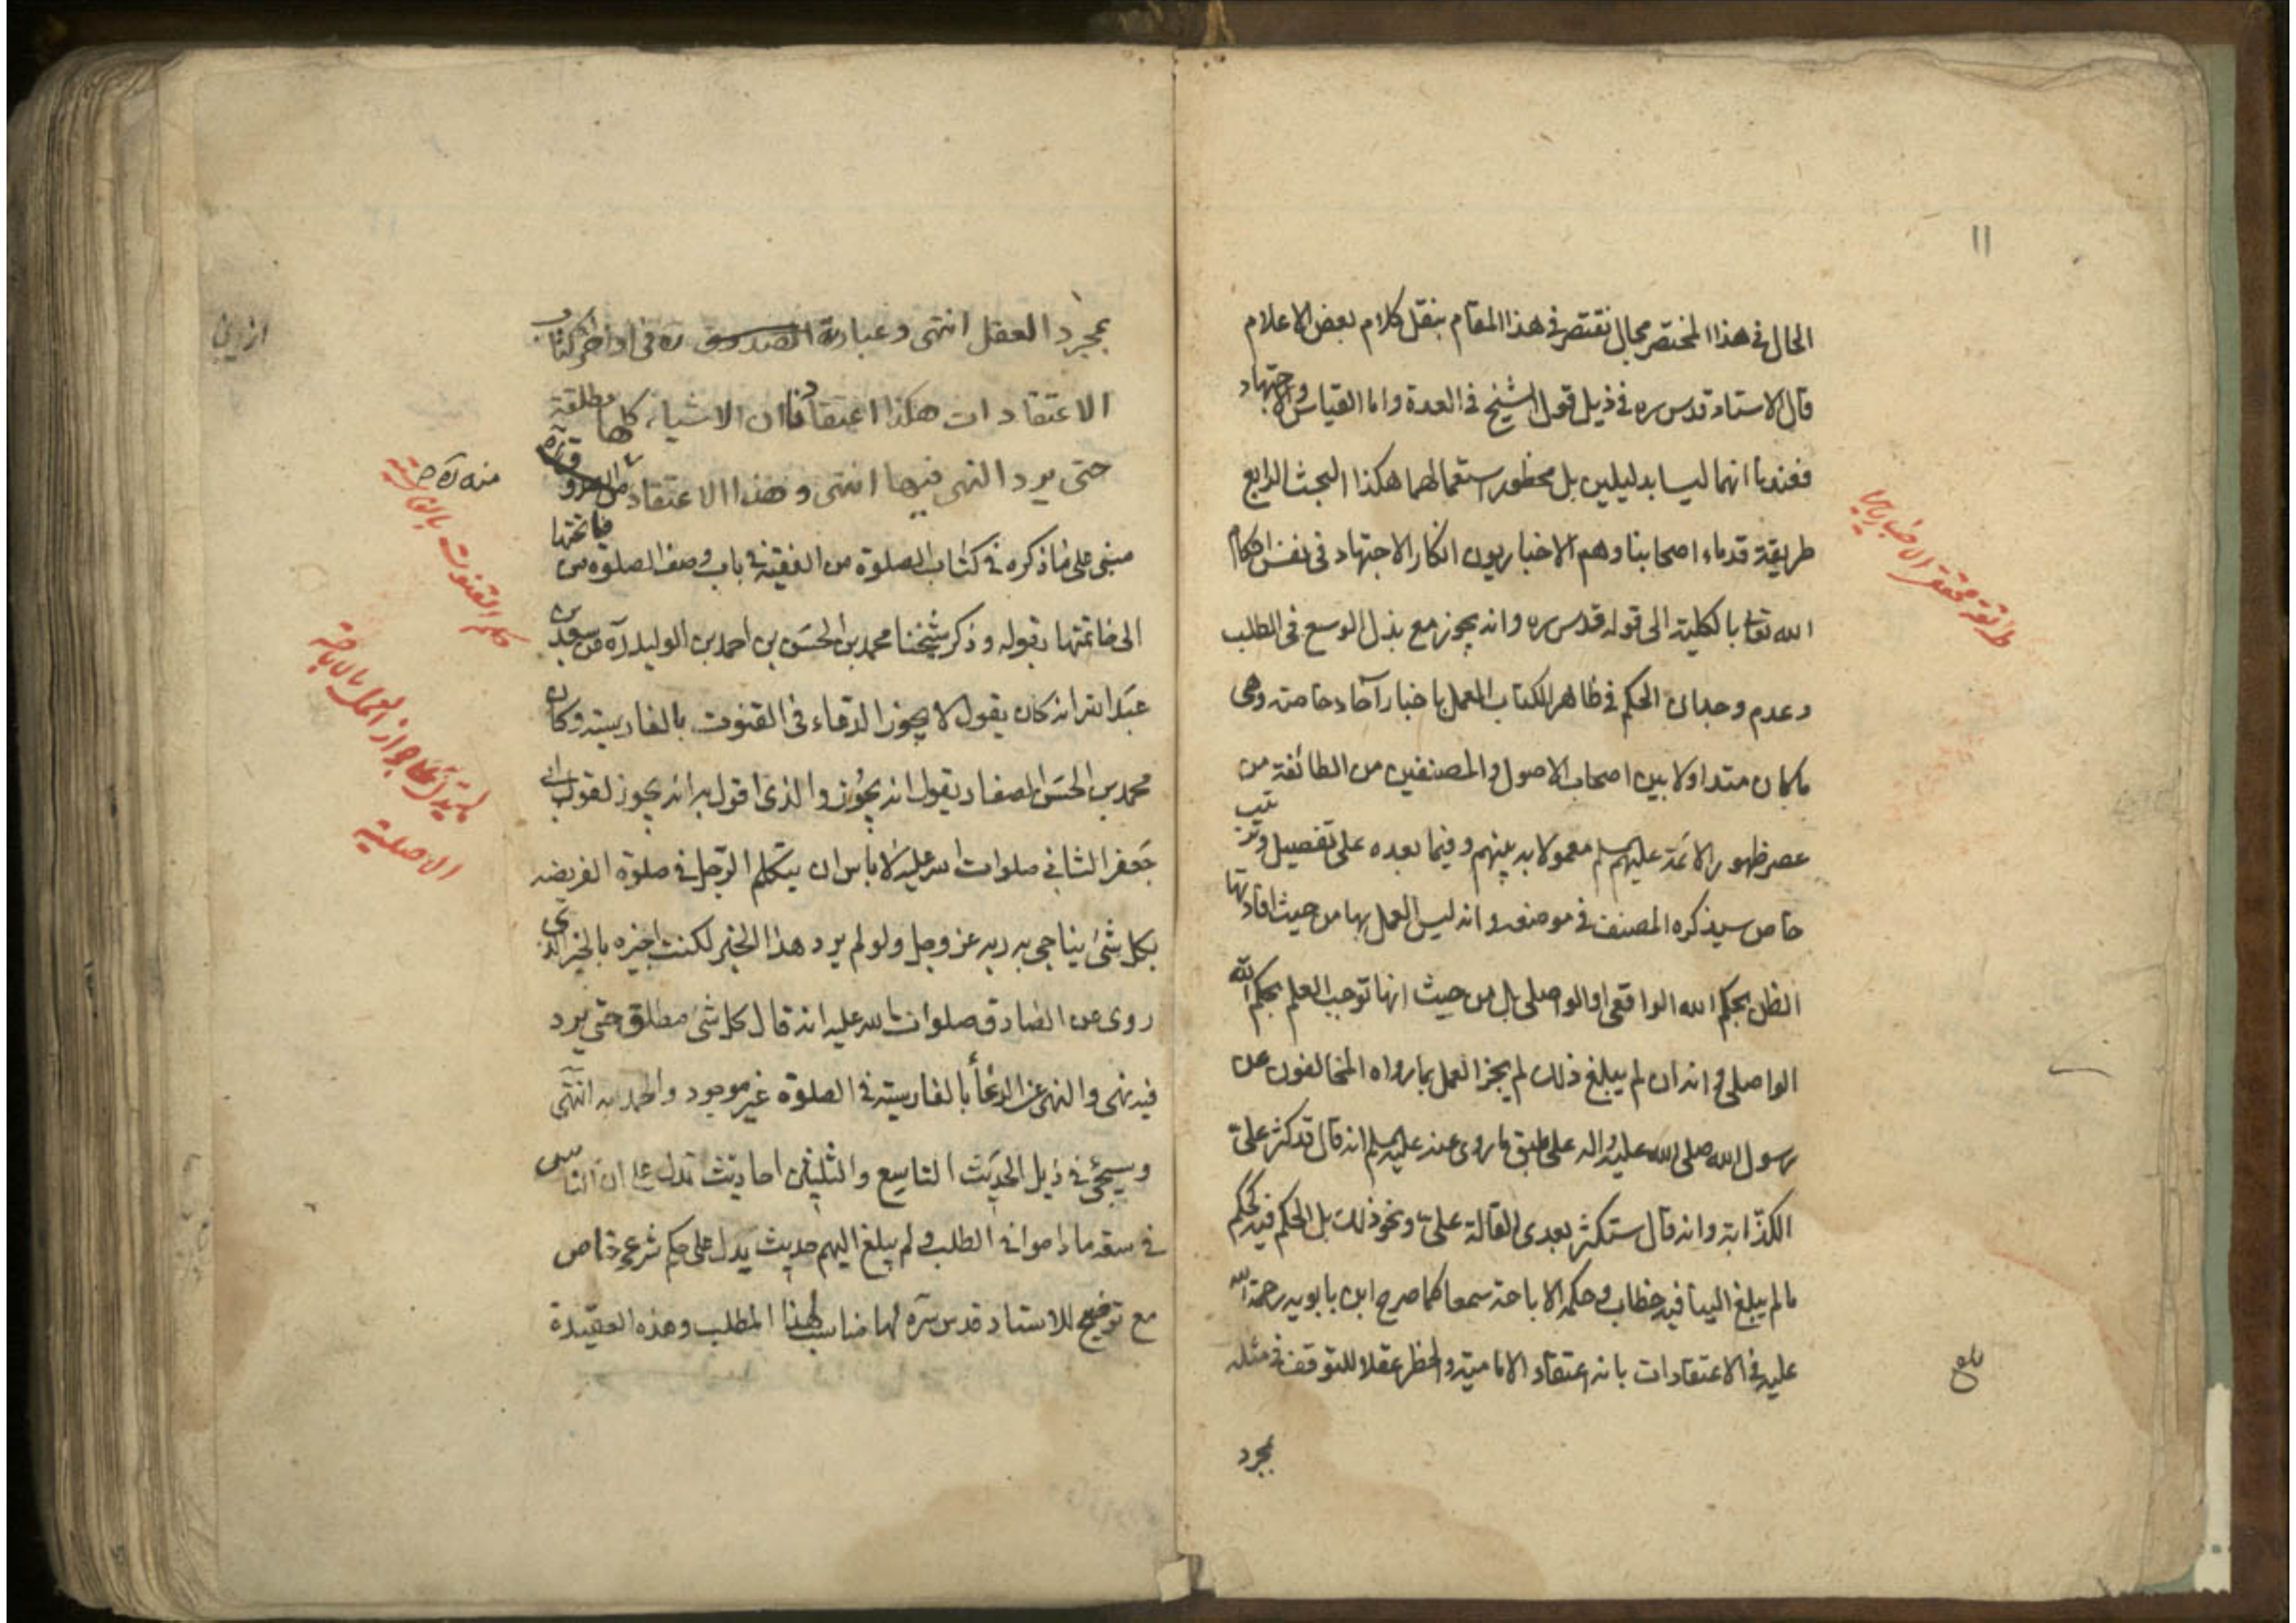 ١١
الحال في هذا المختصر مجال نقتصر في هذا المقام بنقل كلام بعض الاعلام
قال الاستاد قدس سره في ذيل قول الشيخ في العدة واما القياس والاجتهاد
فعندنا انهما ليسا بدليلين بل محظور استعمالهما هكذا البحث الرابع
طريقة قدماء اصحابنا وهم الاخباريون انكار الاجتهاد في نفس احكام
الله تعالى بالكلية الى قوله قدس سره وانه يجوز مع بذل الوسع في الطلب
وعدم وجدان الحكم في ظاهر الكتاب العمل باخبار آحاد خاصة وهى
ما كان متداولا بين اصحاب الاصول والمصنفين من الطائفة من
عصر ظهور الائمة عليهم سلم معمولا به بينهم وفيما بعده على تفصيل وترتيب
خاص سيذكره المصنف في موضعه وانه ليس العمل بها من حيث افادتها
الظن بحكم الله الواقعى او الواصلى بل من حيث انها توجب العلم بحكم الله
الواصلى وانه ان لم يبلغ ذلك لم يجز العمل بما رواه المخالفون عن
رسول الله صلى الله عليه واله على طبق ما روى عنه عليه سلم انه قال قد كثر على
الكذابة وانه قال ستكثر بعدى القالة على ونحو ذلك بل الحكم فيه كحكم
ما لم يبلغ الينا فيه خطاب وحكمه الاباحة سمعا كما صرح ابن بابويه رحمة الله
عليه في الاعتقادات بانه اعتقاد الامامية والحظر عقلا للتوقف في مثله
بمجرد
طريقة محقق الاخباريين
بلغ
بمجرد العقل انتهى وعبارة الصدوق ره في اواخر كتاب
الاعتقادات هكذا اعتقادنا ان الاشياء كلها مطلقة
حتى يرد النهى فيها انتهى وهذا الاعتقاد من
مبنى على ما ذكره في كتاب الصلوة من الفقيه في باب وصف الصلوة من فاتحتها
الى خاتمتها بقوله وذكر شيخنا محمد بن الحسن بن احمد بن الوليد ره عن سعد بن
عبد الله انه كان يقول لا يجوز الدعاء في القنوت بالفارسية وكان
محمد بن الحسن الصفار يقول انه يجوز والذى اقول به انه يجوز لقول ابى
جعفر الثاني صلوات الله عليه لا باس ان يتكلم الرجل في صلوة الفريضه
بكل شئ يناجى به ربه عز وجل ولو لم يرد هذا الخبر لكنت اجيزه بالخبر الذى
روى عن الصادق صلوات الله عليه انه قال كل شئ مطلق حتى يرد
فيه نهى والنهى عن الدعاء بالفارسية في الصلوة غير موجود والحمد لله انتهى
وسيجئ في ذيل الحديث التاسع والثلثين احاديث تدل على ان الناس
في سعة ما داموا في الطلب ولم يبلغ اليهم حديث يدل على حكم شرعى خاص
مع توضيح للاستاد قدس سره لها مناسب لهذا المطلب وهذه العقيدة
منه ره
حكم القنوت بالفارسية
جواز العمل بالاباحة
الاصلية